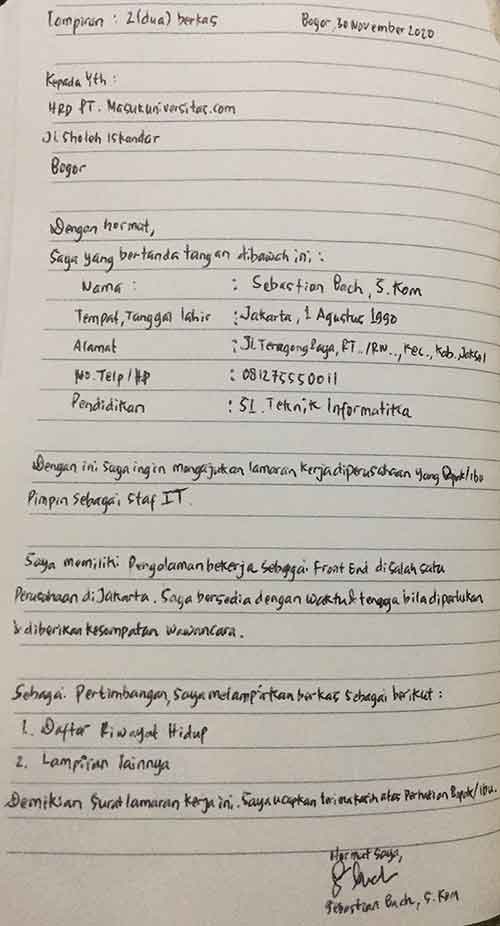 Lampiran : 2 (dua) berkas Bogor, 30 November 2020
Kepada Yth :
HRD PT. Masukuniversitas.com
Jl Sholeh Iskandar
Bogor
Dengan hormat,
Saya yang bertanda tangan dibawah ini :
Nama : : Sebastian Bach, S.Kom
Tempat, Tanggal lahir : Jakarta, 1 Agustus 1990
Alamat : Jl. Terogong Raya, RT../RW.., Kec., Kab. Jaksel
No. Telp/HP : 081275550011
Pendidikan : S1. Teknik Informatika
Dengan ini saya ingin mengajukan lamaran kerja diperusahaan yang Bapak/ibu
Pimpin sebagai staf IT.
Saya memiliki Pengalaman bekerja sebagai Front End disalah satu
Perusahaan di Jakarta. Saya bersedia dengan waktu & tenaga bila diperlukan
& diberikan kesempatan wawancara.
Sebagai Pertimbangan, saya melampirkan berkas sebagai berikut :
1. Daftar Riwayat Hidup
2. Lampiran lainnya
Demikian Surat lamaran kerja ini. Saya ucapkan terima kasih atas Perhatian Bapak/ibu.
Hormat saya,
Sebastian Bach, S.Kom